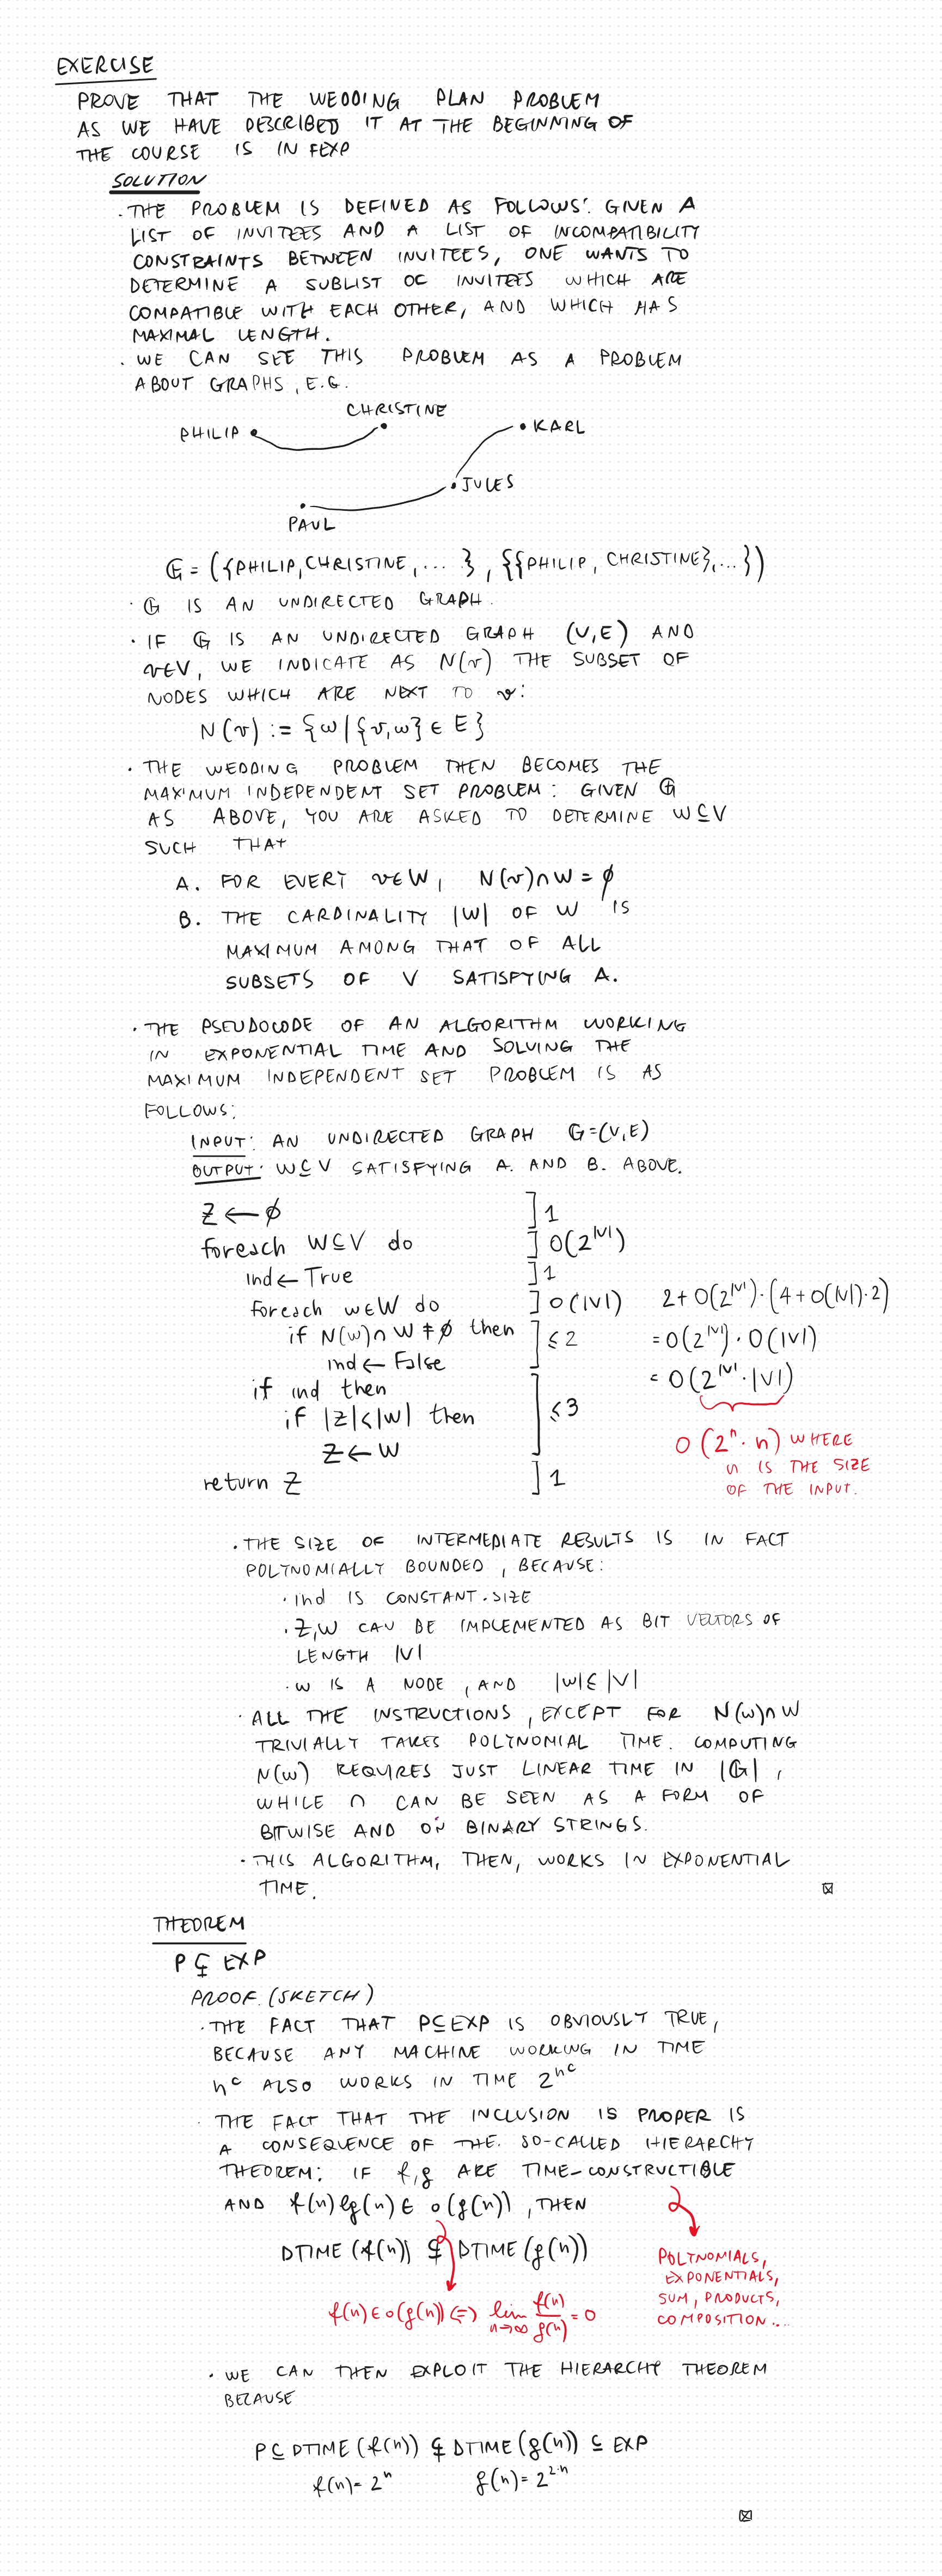 EXERCISE
PROVE THAT THE WEDDING PLAN PROBLEM
AS WE HAVE DESCRIBED IT AT THE BEGINNING OF
THE COURSE IS IN FEXP
SOLUTION
· THE PROBLEM IS DEFINED AS FOLLOWS: GIVEN A
LIST OF INVITEES AND A LIST OF INCOMPATIBILITY
CONSTRAINTS BETWEEN INVITEES, ONE WANTS TO
DETERMINE A SUBLIST OF INVITEES WHICH ARE
COMPATIBLE WITH EACH OTHER, AND WHICH HAS
MAXIMAL LENGTH.
· WE CAN SEE THIS PROBLEM AS A PROBLEM
ABOUT GRAPHS, E.G.
CHRISTINE
PHILIP
KARL
JULES
PAUL
G = ({PHILIP, CHRISTINE, ... }, {{PHILIP, CHRISTINE}, ...})
· G IS AN UNDIRECTED GRAPH.
· IF G IS AN UNDIRECTED GRAPH (V,E) AND
v∈V, WE INDICATE AS N(v) THE SUBSET OF
NODES WHICH ARE NEXT TO v:
N(v) := {w | {v,w} ∈ E}
· THE WEDDING PROBLEM THEN BECOMES THE
MAXIMUM INDEPENDENT SET PROBLEM: GIVEN G
AS ABOVE, YOU ARE ASKED TO DETERMINE W⊆V
SUCH THAT
A. FOR EVERY v∈W, N(v)∩W = ∅
B. THE CARDINALITY |W| OF W IS
MAXIMUM AMONG THAT OF ALL
SUBSETS OF V SATISFYING A.
· THE PSEUDOCODE OF AN ALGORITHM WORKING
IN EXPONENTIAL TIME AND SOLVING THE
MAXIMUM INDEPENDENT SET PROBLEM IS AS
FOLLOWS:
INPUT: AN UNDIRECTED GRAPH G=(V,E)
OUTPUT: W⊆V SATISFYING A. AND B. ABOVE.
Z ← ∅ ] 1
foreach W⊆V do ] O(2^|V|)
ind ← True ] 1
foreach w∈W do ] O(|V|) 2+O(2^|V|)·(4+O(|V|)·2)
if N(w)∩W ≠ ∅ then ] ≤2 = O(2^|V|)·O(|V|)
ind ← False = O(2^|V|·|V|)
if ind then
if |Z|<|W| then ] ≤3
Z ← W O(2^n · n) WHERE
n IS THE SIZE
OF THE INPUT.
return Z ] 1
· THE SIZE OF INTERMEDIATE RESULTS IS IN FACT
POLYNOMIALLY BOUNDED, BECAUSE:
· ind IS CONSTANT-SIZE
· Z, W CAN BE IMPLEMENTED AS BIT VECTORS OF
LENGTH |V|
· w IS A NODE, AND |w| ≤ |V|
· ALL THE INSTRUCTIONS, EXCEPT FOR N(w)∩W
TRIVIALLY TAKES POLYNOMIAL TIME. COMPUTING
N(w) REQUIRES JUST LINEAR TIME IN |G|,
WHILE ∩ CAN BE SEEN AS A FORM OF
BITWISE AND ON BINARY STRINGS.
· THIS ALGORITHM, THEN, WORKS IN EXPONENTIAL
TIME.
THEOREM
P ⊊ EXP
PROOF. (SKETCH)
· THE FACT THAT P⊆EXP IS OBVIOUSLY TRUE,
BECAUSE ANY MACHINE WORKING IN TIME
n^c ALSO WORKS IN TIME 2^n^c
· THE FACT THAT THE INCLUSION IS PROPER IS
A CONSEQUENCE OF THE SO-CALLED HIERARCHY
THEOREM: IF f,g ARE TIME-CONSTRUCTIBLE
AND f(n)lg(n) ∈ o(g(n)), THEN
DTIME(f(n)) ⊊ DTIME(g(n))
POLYNOMIALS,
EXPONENTIALS,
SUM, PRODUCTS,
COMPOSITION...
f(n)∈o(g(n)) ⇔ lim n→∞ f(n)/g(n) = 0
· WE CAN THEN EXPLOIT THE HIERARCHY THEOREM
BECAUSE
P ⊆ DTIME(f(n)) ⊊ DTIME(g(n)) ⊆ EXP
f(n)=2^n g(n)=2^2·n